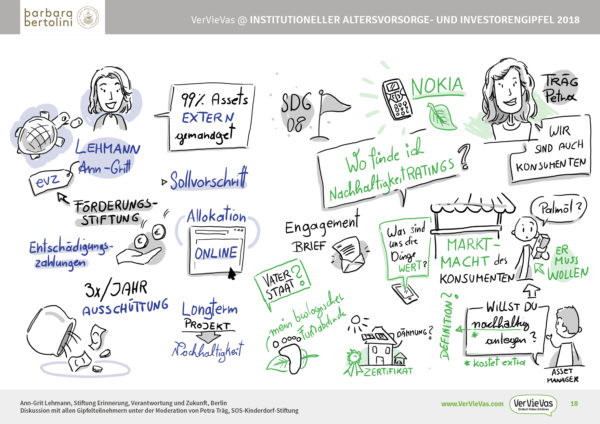 barbara
bertolini
VerVieVas @ INSTITUTIONELLER ALTERSVORSORGE- UND INVESTORENGIPFEL 2018
LEHMANN
Ann-Grit
evz
FÖRDERUNGS-
STIFTUNG
Entschädigungs-
zahlungen
3x/JAHR
AUSSCHÜTTUNG
99% Assets
EXTERN
gemanaget
Sollvorschrift
Allokation
ONLINE
Longterm
PROJEKT
Nachhaltigkeit
SDG
08
NOKIA
TRÄG
Petra
WIR
SIND AUCH
KONSUMENTEN
Wo finde ich
Nachhaltigkeit RATINGS?
Engagement
BRIEF
Was sind
uns die
Dinge
WERT?
MARKT-
MACHT des
KONSUMENTEN
Palmöl?
ER
MUSS
WOLLEN
VATER
STAAT?
mein biologischer
Fußabdruck
DÄMMUNG?
ZERTIFIKAT
DEFINITION?
WILLST DU
nachhaltig
* anlegen?
* kostet extra
ASSET
MANAGER
Ann-Grit Lehmann, Stiftung Erinnerung, Verantwortung und Zukunft, Berlin
Diskussion mit allen Gipfelteilnehmern unter der Moderation von Petra Träg, SOS-Kinderdorf-Stiftung
www.VerVieVas.com
VerVieVas
18